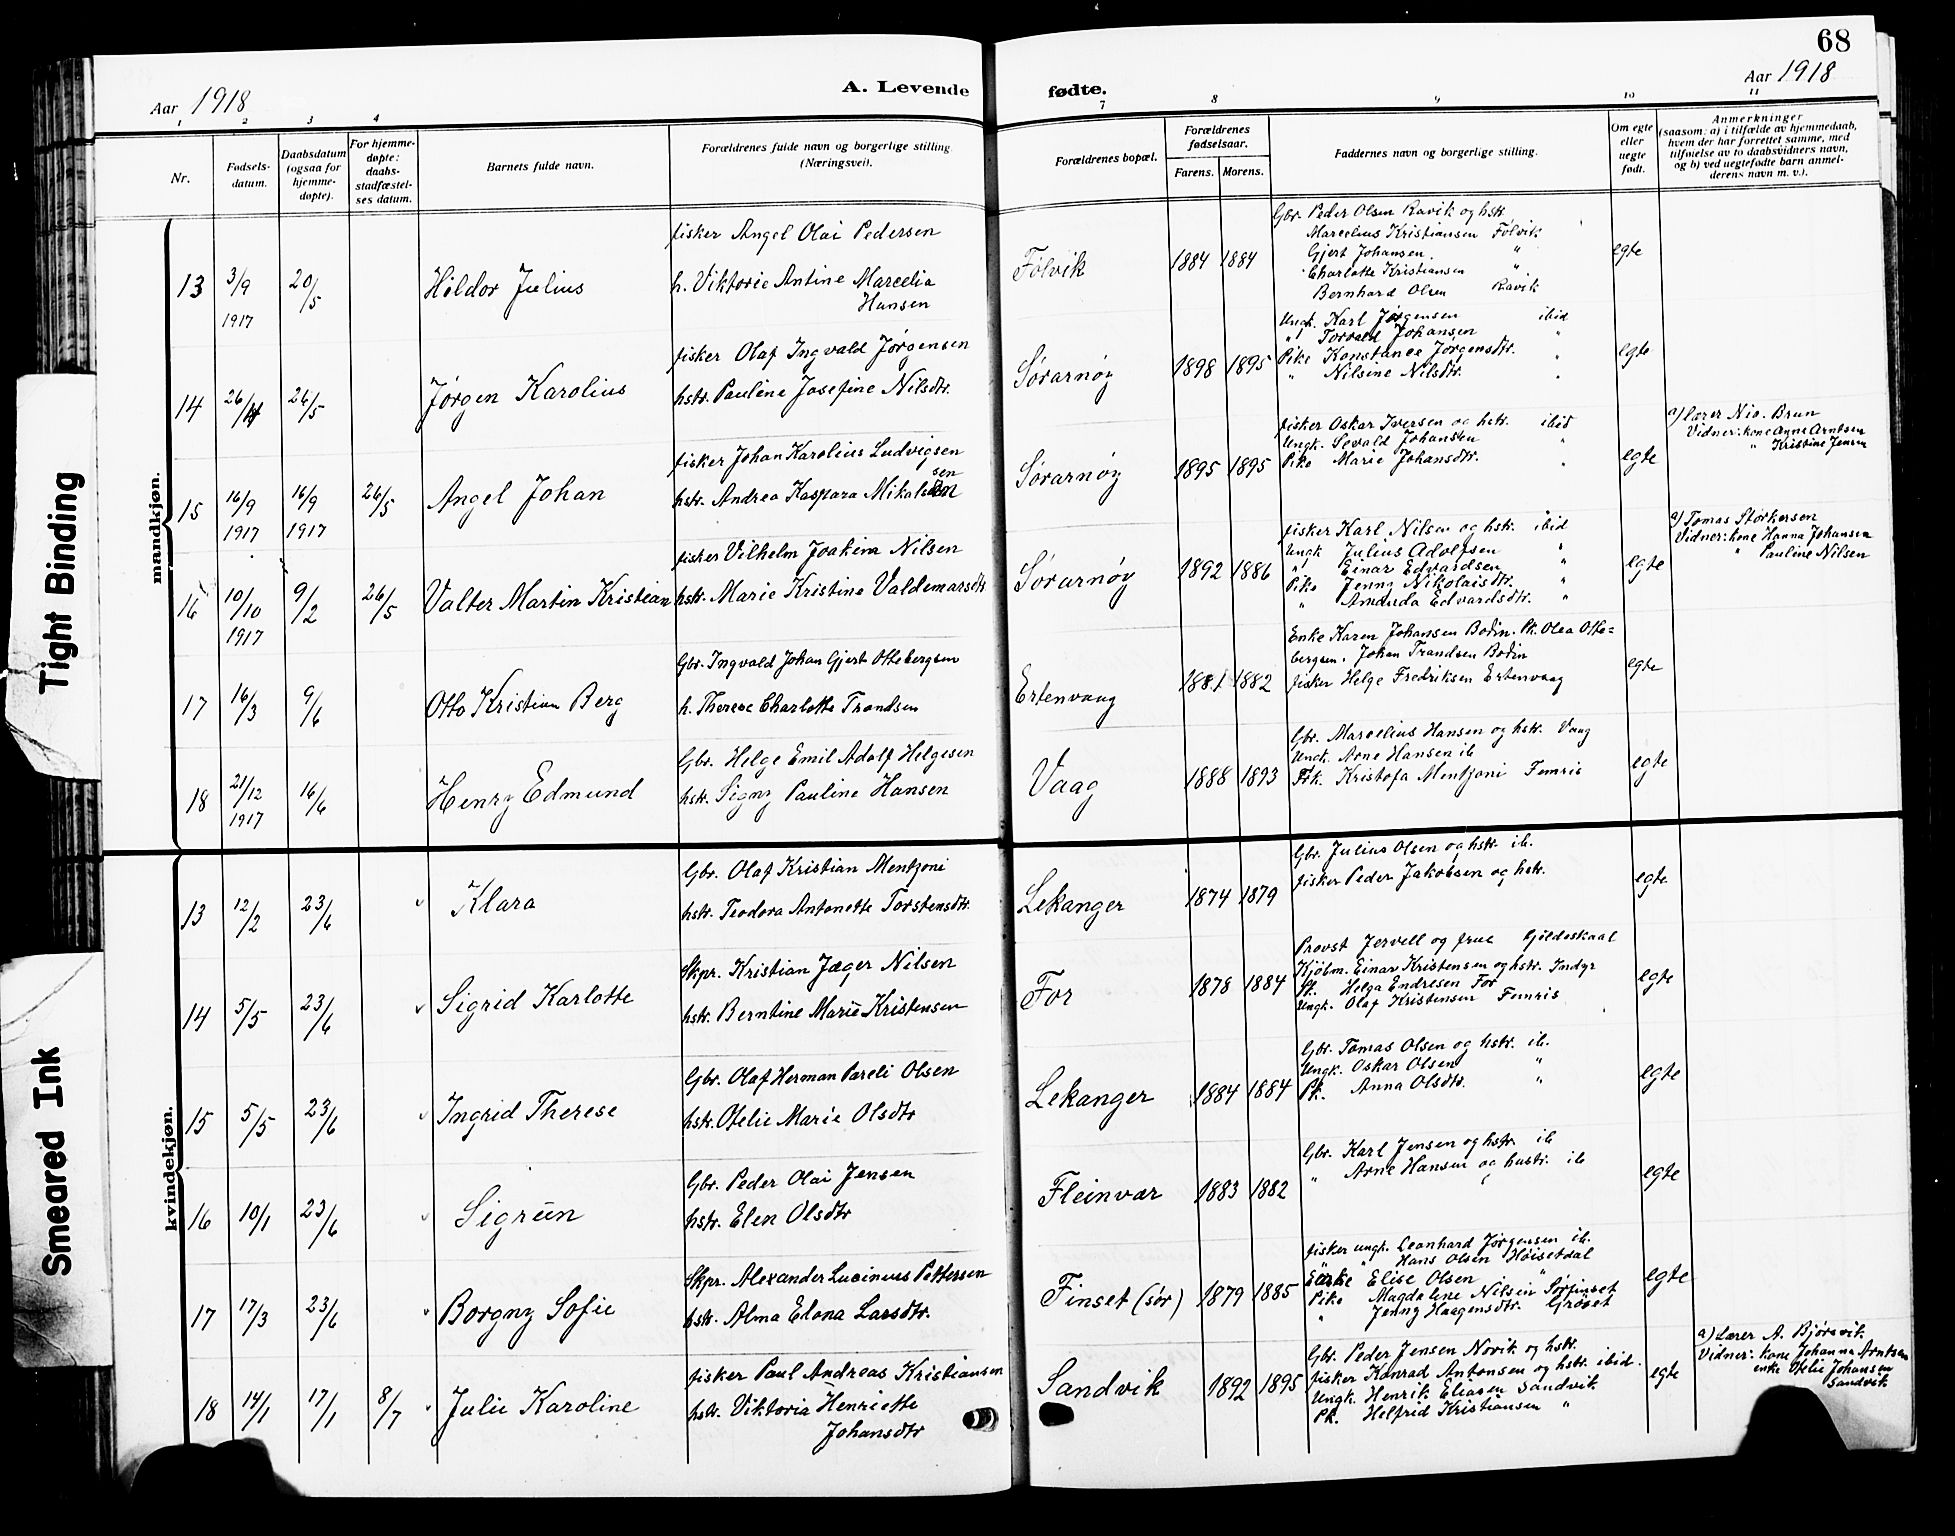 68
Aar 1918
A. Levende
fødte.
Aar 1918
1 2 3 4 7 8 9 10 11
Nr.
Fødsels-
datum.
Daabsdatum
(ogsaa for
hjemme-
døpte).
For hjemme-
døpte:
daabs-
stadfæstel-
ses datum.
Barnets fulde navn.
Forældrenes fulde navn og borgerlige stilling
(Næringsvei).
Forældrenes bopæl.
Forældrenes
fødselsaar.
Farens. Morens.
Faddernes navn og borgerlige stilling.
Om egte
eller
uegte
født.
Anmerkninger
(saasom: a) i tilfælde av hjemmedaab,
hvem der har forrettet samme, med
tilføielse av to daabsvidners navn,
og b) ved uegtefødte barn anmel-
derens navn m. v.).
mandkjøn.
13 3/9 1917 20/5 Hildor Julius
fisker Angel Olai Pedersen
h. Viktorie Antine Marcelia
Hansen
Følvik 1884 1884
Gbr. Peder Olsen Ravik og hstr.
Marcelius Kristiansen Følvik
Gjert Johansen "
Charlotte Kristiansen "
Bernhard Olsen Ravik
egte
14 26/4 26/5 Jørgen Karolius
fisker Olaf Ingvald Jørgensen
hstr. Pauline Josefine Nilsdtr.
Sørarnøy 1898 1895
Ungk. Karl Jørgensen ibid
" Torvald Johansen "
Pike Konstance Jørgensdtr. "
" Nilsine Nilsdtr. "
egte
15 16/9 1917 16/9 1917 26/5 Angel Johan
fisker Johan Karolius Ludvigsen
hstr. Andrea Kaspara Mikalsen
Sørarnøy 1895 1895
fisker Oskar Iversen og hstr. ibid
Ungk. Sevald Johansen "
Pike Marie Johansdtr. "
egte
a) Lærer Nic. Brun
Vidner: kone Anne Arntsen
" Kristine Jensen
16 10/10 1917 9/2 26/5 Valter Martin Kristian
fisker Vilhelm Joakim Nilsen
hstr. Marie Kristine Valdemarsdtr.
Sørarnøy 1892 1886
fisker Karl Nilsen og hstr. ibid
Ungk Julius Adolfsen "
" Einar Edvardsen "
Pike Jenny Nikolaisdtr. "
" Amanda Edvardsdtr. "
egte
a) Tomas Størkersen
Vidner: kone Hanna Johansen
" Pauline Nilsen
17 16/3 9/6 Otto Kristian Berg
Gbr. Ingvald Johan Gjert Ottebergsen
h. Therese Charlotte Trondsen
Ertenvaag 1881 1882
Enke Karen Johansen Bodin. Pk. Olea Otte=
bergsen. Johan Trandsen Bodin
fisker Helge Fredriksen Ertenvaag
egte
18 21/12 1917 16/6 Henry Edmund
Gbr. Helge Emil Adolf Helgesen
hstr. Signy Pauline Hansen
Vaag 1888 1893
Gbr. Marcelius Hansen og hstr. Vaag
Ungk. Arne Hansen ib
Frk. Kristofa Mentzoni Femris
egte
kvindekjøn.
13 12/2 23/6 Klara
Gbr. Olaf Kristian Mentzoni
hstr. Teodora Antonette Torstensdtr.
Lekanger 1874 1879
Gbr. Julius Olsen og hstr. ib.
fisker Peder Jakobsen og hstr.
egte
14 5/5 23/6 Sigrid Karlotte
Skpr. Kristian Jæger Nilsen
hstr. Berntine Marie Kristensen
For 1878 1884
Provst Jervell og frue Gjildeskaal
Kjøbm. Einar Kristensen og hstr. Indyr
Pk. Helga Endresen For
Ungk. Olaf Kristensen Femris
egte
15 5/5 23/6 Ingrid Therese
Gbr. Olaf Herman Pareli Olsen
hstr. Otelie Marie Olsdtr
Lekanger 1884 1884
Gbr. Tomas Olsen og hstr. ib.
Ungk. Oskar Olsen "
Pk. Anna Olsdtr. "
egte
16 10/1 23/6 Sigrun
Gbr. Peder Olai Jensen
hstr. Elen Olsdtr
Fleinvær 1883 1882
Gbr. Karl Jensen og hstr. ib
" Arne Hansen og hustr. ib
egte
17 17/3 23/6 Borgny Sofie
Skpr. Alexander Lucinius Pettersen
hstr. Alma Elena Larsdtr.
Finset (sør) 1879 1885
fisker ungk. Leonhard Jørgensen ib.
" " Hans Olsen Høisetdal
Enke Elise Olsen "
Pike Magdalene Nilsen Sørfinset
" Jenny Haagensdtr. Grøset
egte
18 14/1 17/1 8/7 Julie Karoline
fisker Paul Andreas Kristiansen
hstr. Viktoria Henriette
Johansdtr
Sandvik 1892 1895
Gbr. Peder Jensen Novik og hstr.
fisker Konrad Antonsen og hstr. ibid.
Ungk. Henrik Eliasen Sandvik
Pk. Helfrid Kristiansen "
egte
a) Lærer A. Bjørvik
Vidner: kone Johanna Arntsen
enke Otelie Johansen
Sandvik
Tight Binding
Smeared Ink